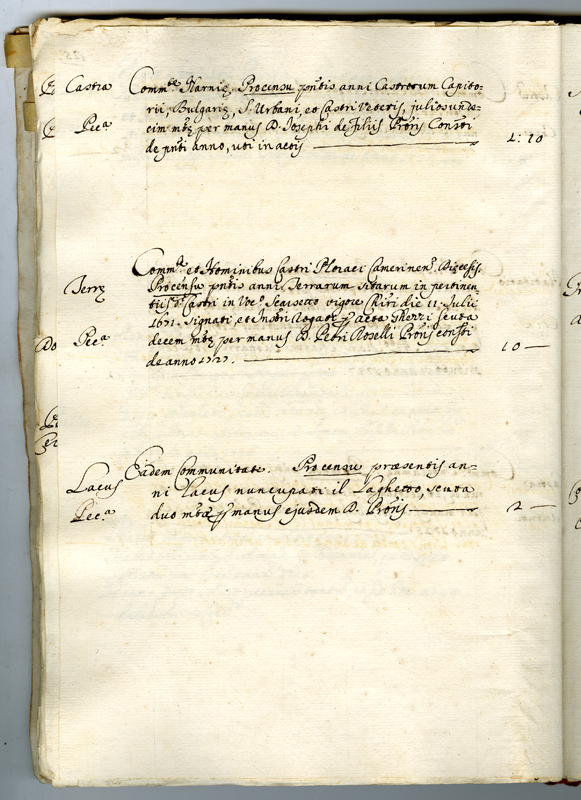 Castra
Comm.te Narniæ, Pro censu pñtis anni Castrorum Capito-
rij, Bulgariæ, S. Urbani, et Castri Veteris, julios unde-
Pec.a
cim mtæ per manus D. Josephi de Filiis Proris Consti
de pñti anno, uti in actis
1: 10
Comm.ti et Hominibus Castri Ploraci Camerinen. Diœcesis.
Terræ
Pro censu pñtis anni Terrarum sitarum in pertinen-
tijs d. Castri in Voc.o vigore Chiri die 11. Julij
1671. signati, et Instri Rogat. p acta scuta
Pec.a
decem mtæ per manus D. Petri Roselli Proris consti
de anno 1727.
10 —
Eadem Communitate. Pro censu præsentis an-
Lacus
ni Lacus nuncupati il Laghetto, scuta
Pec.a
duo mtæ p manus ejusdem D. Proris
2 —